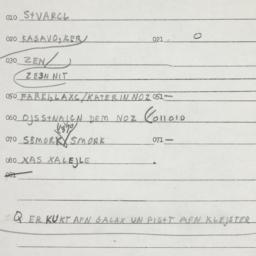 010 STVARCL
020 KASAVOLKER/ 021 O
030 ZEN/
ZEBN NIT
050 FARELLAXC/KATERIN NOZ 051-
060 OJSSTNAJGN DEM NOZ 011010
070 SBMORK/SMORK 071-
080 XAS XALEJLE
081
Q ER KUKT AFN GALAX UN PIGST AFN KLEJSTER